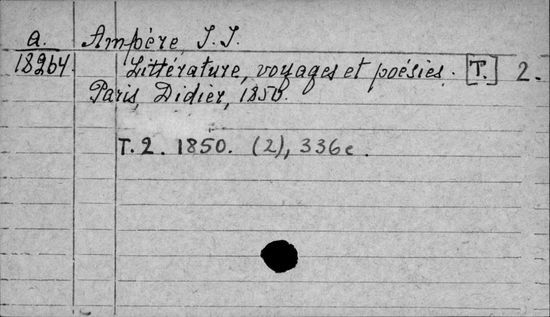 a. Ampère, J. J.
18264. Littérature, voyages et poésies. [T.] 2.
Paris, Didier, 1850.
T. 2. 1850. (2), 336c.